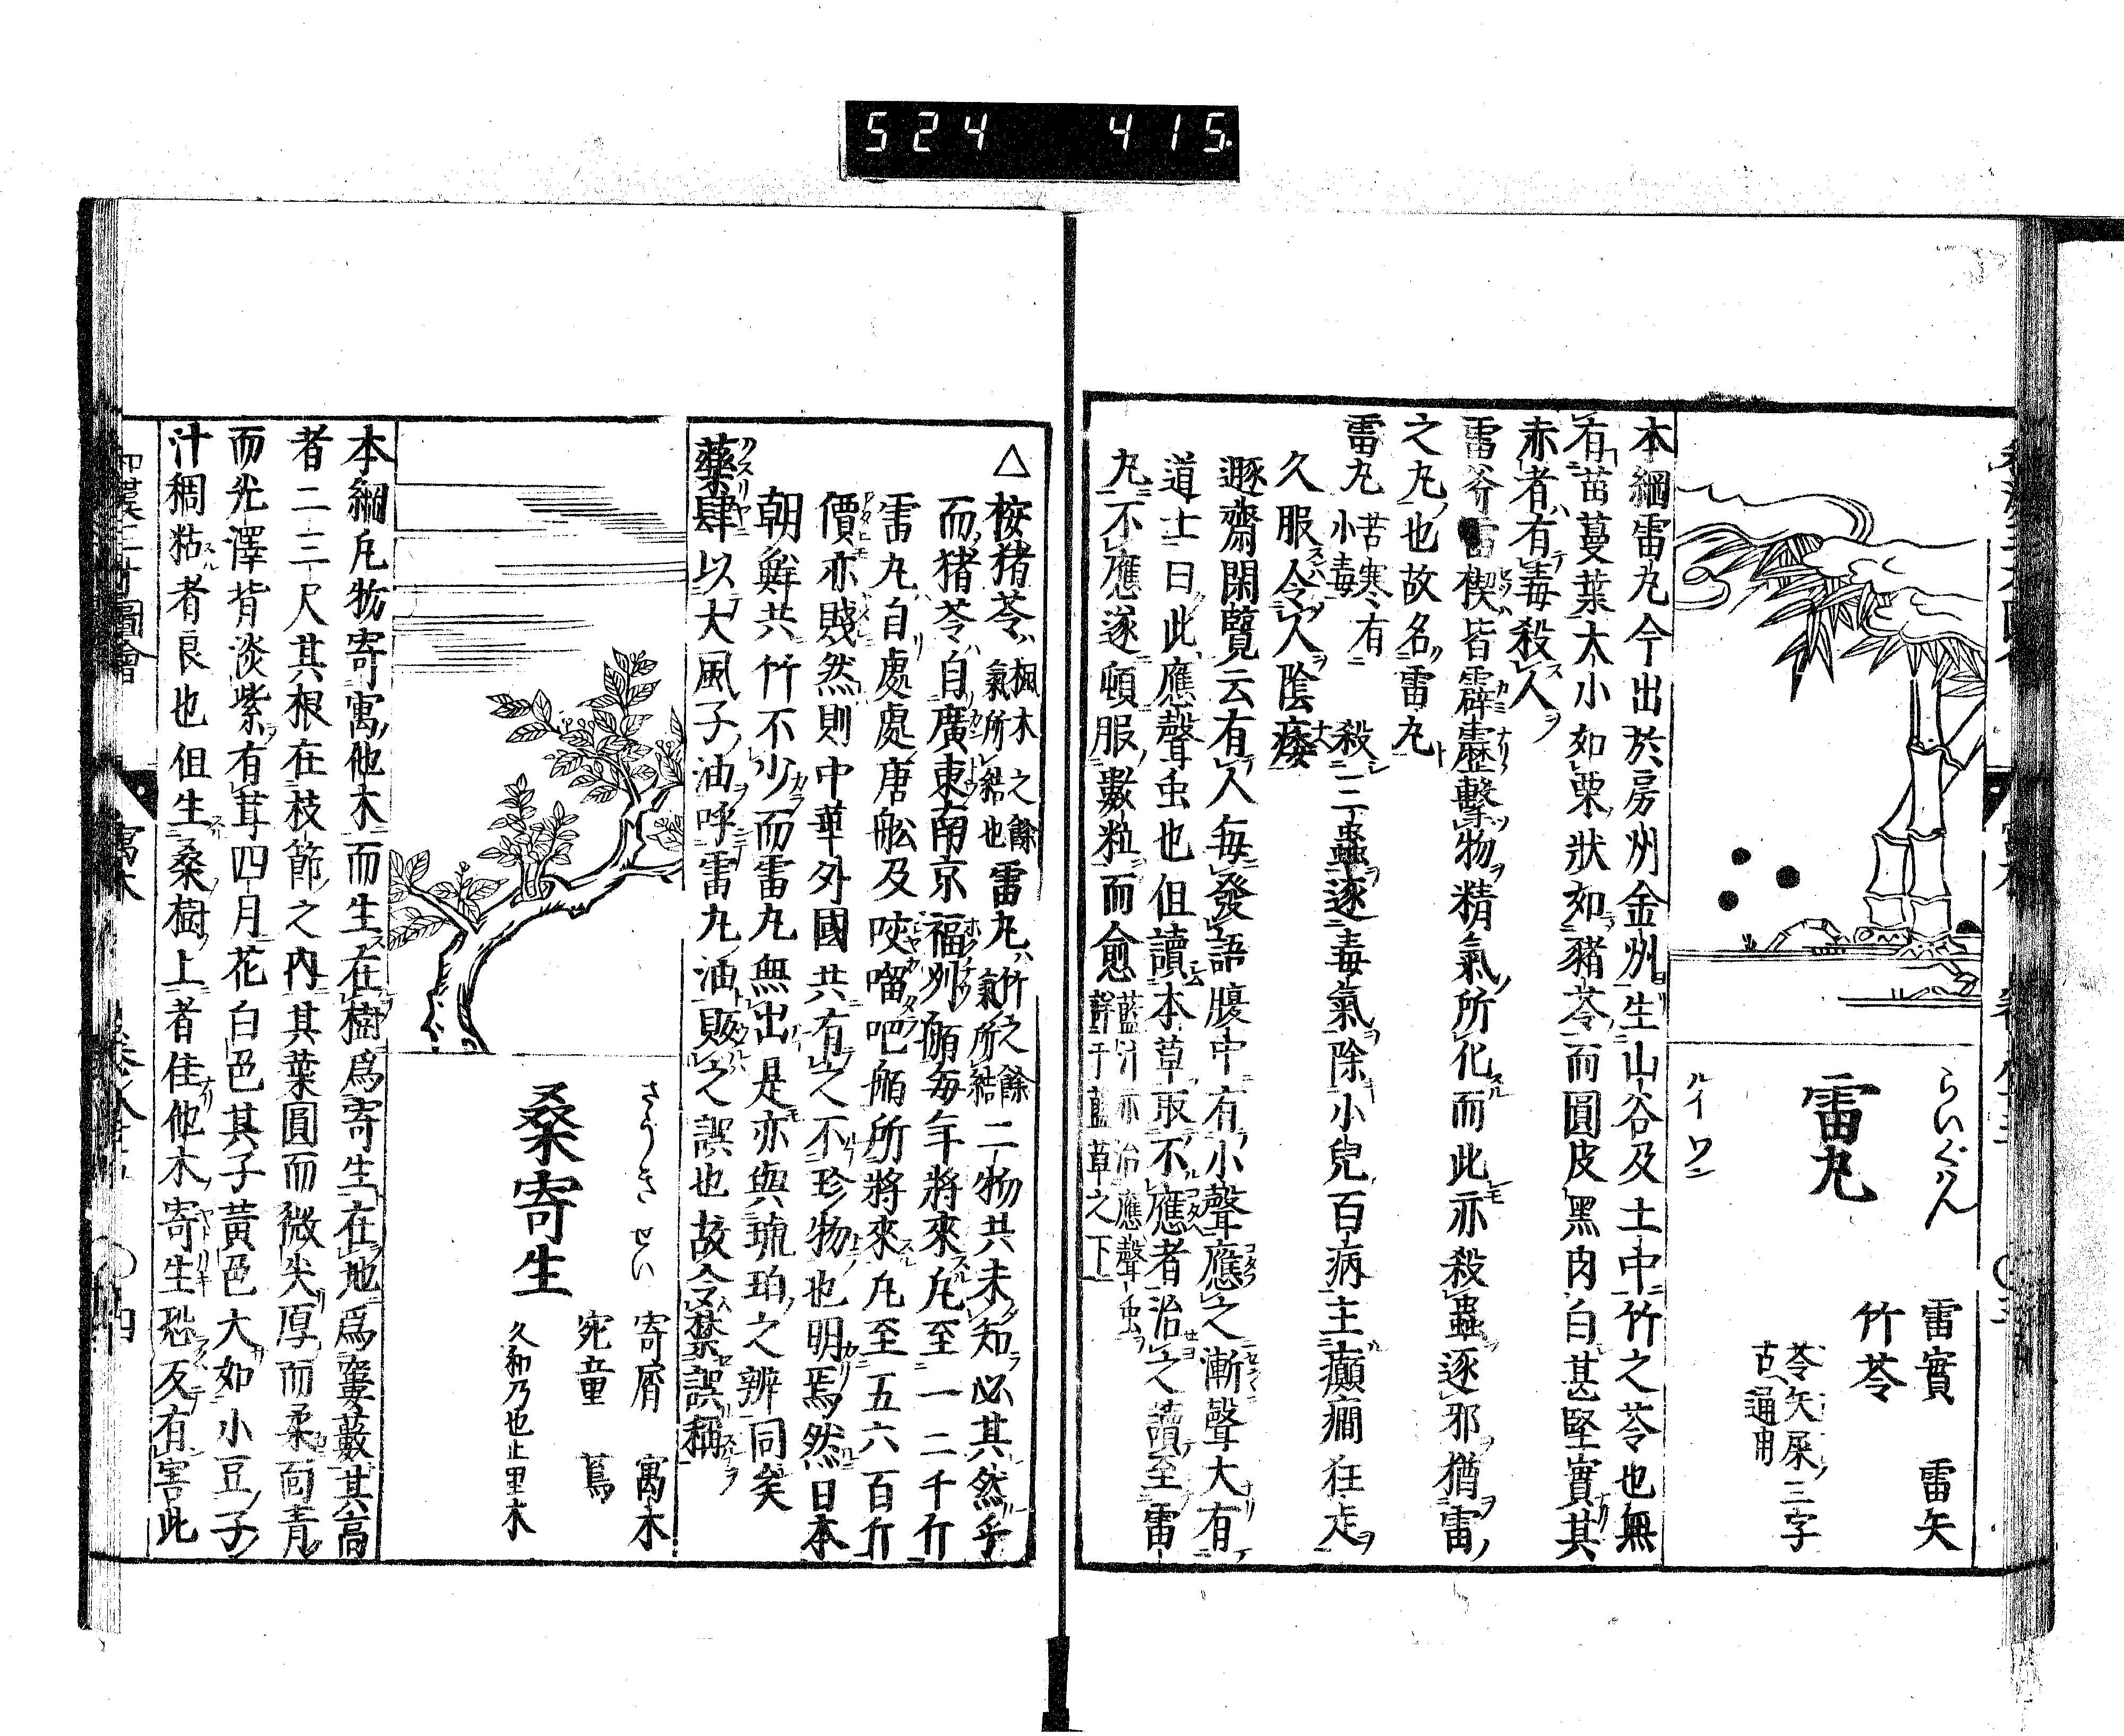 524 415
らいぐはん
雷丸
ルイワン
雷實 雷矢
竹苓
苓矢屎三字
古通用
本綱雷丸今出於房州金州生山谷及土中竹之苓也無
有苗蔓葉大小如栗狀如豬苓而圓皮黑肉白甚堅實其
赤者有毒殺人
雷斧雷楔皆霹靂擊物精氣所化而此亦殺蟲逐邪猶雷
之丸也故名雷丸
雷丸
苦寒有
小毒
殺三蟲逐毒氣除小兒百病主癲癇狂走
久服令人陰痿
遯齋閑覽云有人毎發語腹中有小聲應之漸聲大有
道士曰此應聲虫也但讀本草取不應者治之讀至雷
丸不應遂頓服數粒而愈
藍汁亦治應聲虫
詳于藍草之下
△按猪苓
楓木之餘
氣所結也
雷丸
竹之餘
氣所結
二物共未知必其然乎
而猪苓自廣東南京福州舶毎年將來凡至一二千斤
雷丸自處處唐舩及咬𠺕吧舶所將來凡至五六百斤
價亦賤然則中華外國共有之不珍物也明焉然日本
朝鮮共竹不少而雷丸無出是亦與琥珀之辨同矣
藥肆以大風子油呼雷丸油販之誤也故令禁誤稱
さうきせい
桑寄生
寄屑 寓木
宛童 蔦
久和乃也止里木
本綱凡物寄寓他木而生在樹爲寄生在地爲寠藪其高
者二三尺其根在枝節之内其葉圓而微尖厚而柔面青
而光澤背淡紫有茸四月花白色其子黃色大如小豆子
汁稠粘者良也但生桑樹上者佳他木寄生恐反有害此
寓木